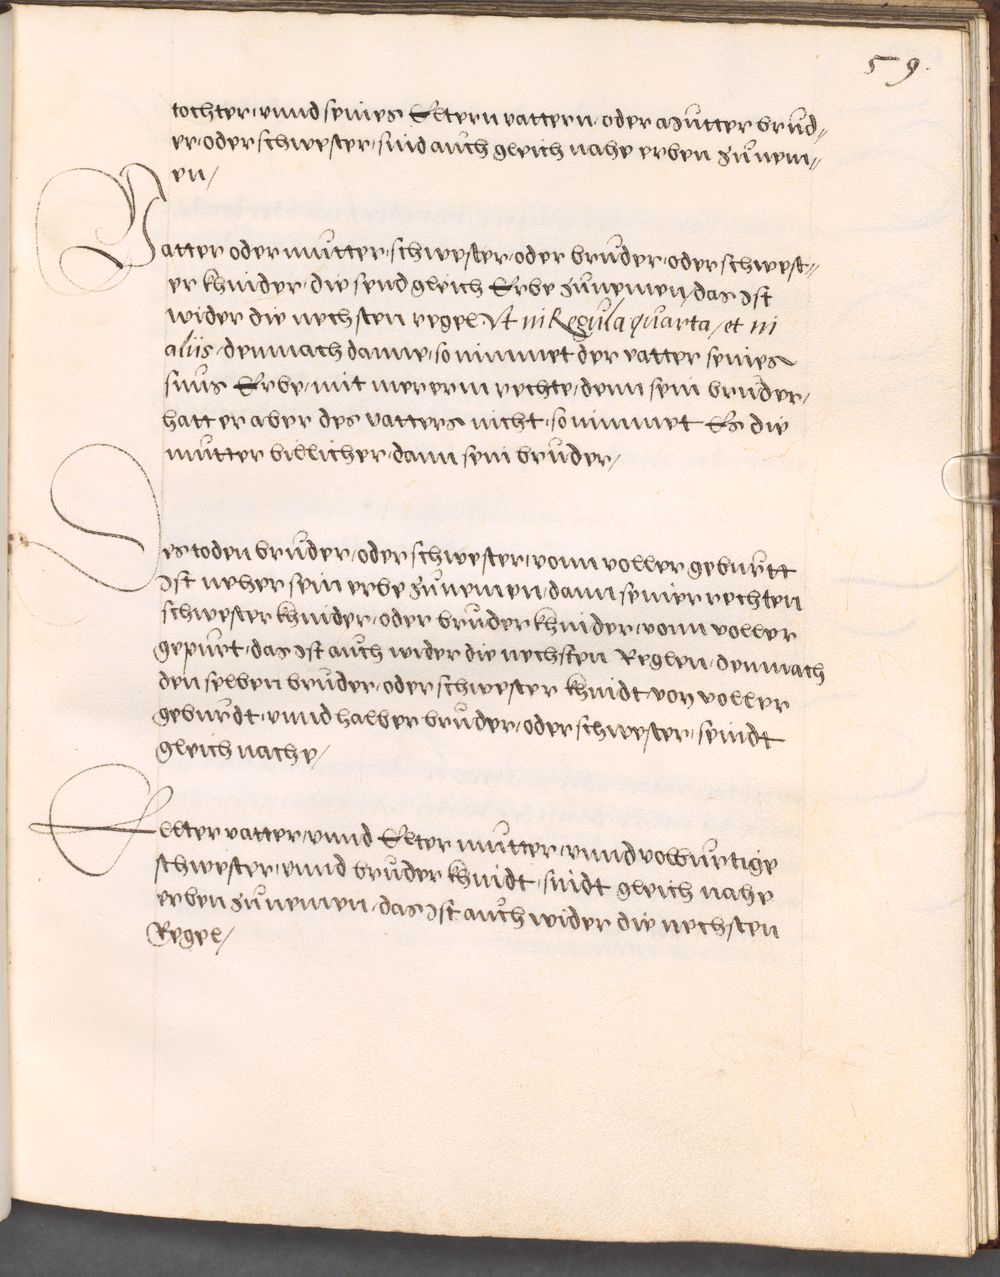 59.
tochter, vnnd seines Eltern vattern, oder Mutter brúd⸗
er, oder schwester, sind aúch gleich nahe erben zúnem⸗
en/
Vatter oder mútter, schwester, oder brúder, oder schwest⸗
er khinder, die send gleich Erbe zúnemen, das Ist
wider die nechsten regel. Vt in Regula quarta, et in
aliis, dennach danne, so nimmet der vatter seines
súns Erbe, mit mererm rechte, denn sein brúder,
hatt er aber des vatters nicht, so nimmet Es die
mútter billicher, dann sein brúder/
Des toden brúder, oder schwester, vonn voller gebúrtt
Ist neher sein erbe zúnemen, dann seiner rechten
schwester khinder, oder brúder khinder, vonn voller
gepúrt, das Ist aúch wider die nechsten Reglen, dennach
den selben brúder, oder schwester khindt, von voller
gebúrdt, vnnd halber brúder, oder schwester, seindt
gleich nache/
Ellter vatter, vnnd Elter mútter, vnnd volbúrtige
schwester, vnnd brúder khindt, sindt gleich nahe
erben zúnemen, das Ist aúch wider die nechsten
Regel/